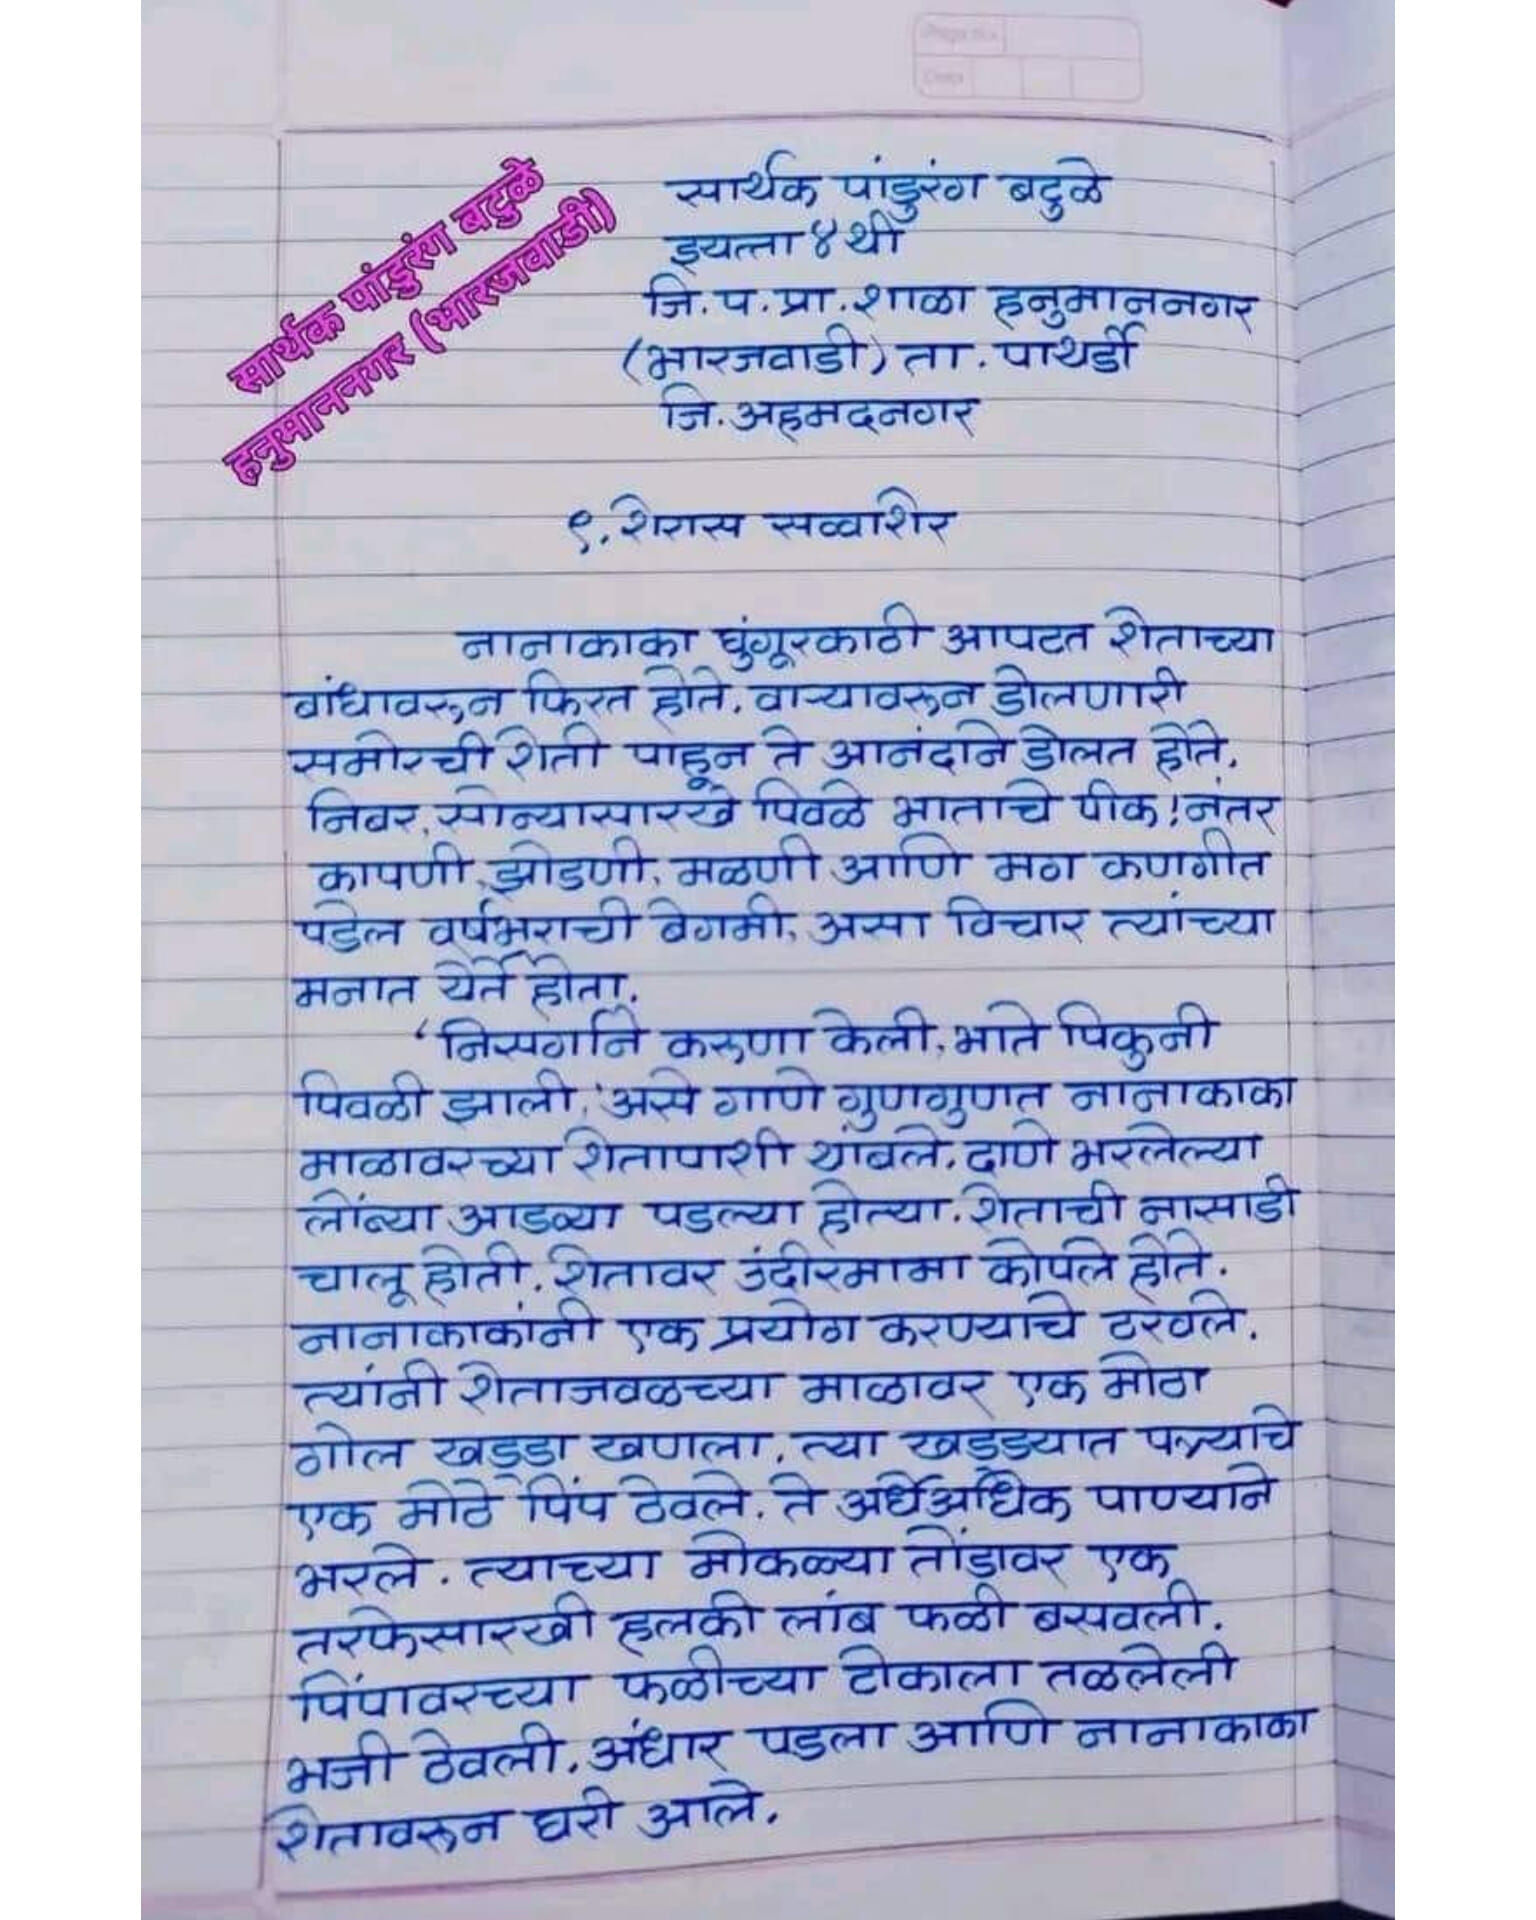 Page No.
Date
सार्थक पांडुरंग बटुळे
हनुमाननगर (भारजवाडी)
सार्थक पांडुरंग बटुळे
इयत्ता ४ थी
जि.प.प्रा.शाळा हनुमाननगर
(भारजवाडी) ता. पाथर्डी
जि.अहमदनगर
९. शेरास सव्वाशेर
नानाकाका घुंगूरकाठी आपटत शेताच्या
बांधावरून फिरत होते. वाऱ्यावरून डोलणारी
समोरची शेती पाहून ते आनंदाने डोलत होते.
निवर, सोन्यासारखे पिवळे भाताचे पीक! नंतर
कापणी, झोडणी, मळणी आणि मग कणगीत
पडेल वर्षभराची बेगमी, असा विचार त्यांच्या
मनात येते होता.
'निसर्गाने करुणा केली, भाते पिकुनी
पिवळी झाली,' असे गाणे गुणगुणत नानाकाका
माळावरच्या शेतापाशी थांबले. दाणे भरलेल्या
लोंब्या आडव्या पडल्या होत्या. शेताची नासाडी
चालू होती. शेतावर उंदीरमामा कोपले होते.
नानाकाकांनी एक प्रयोग करण्याचे ठरवले.
त्यांनी शेताजवळच्या माळावर एक मोठा
गोल खड्डा खणला. त्या खड्ड्यात पत्र्याचे
एक मोठे पिंप ठेवले. ते अर्धेअधिक पाण्याने
भरले. त्याच्या मोकळ्या तोंडावर एक
तरफेसारखी हलकी लांब फळी बसवली.
पिंपावरच्या फळीच्या टोकाला तळलेली
भजी ठेवली. अंधार पडला आणि नानाकाका
शेतावरून घरी आले.